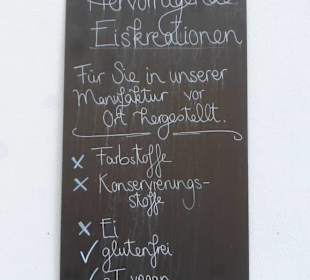 Hervorragende
Eiskreationen
Für Sie in unserer
Manufaktur vor
Ort hergestellt.
x Farbstoffe
x Konservierungs-
stoffe
x Ei
✓ glutenfrei
✓ z.T. vegan